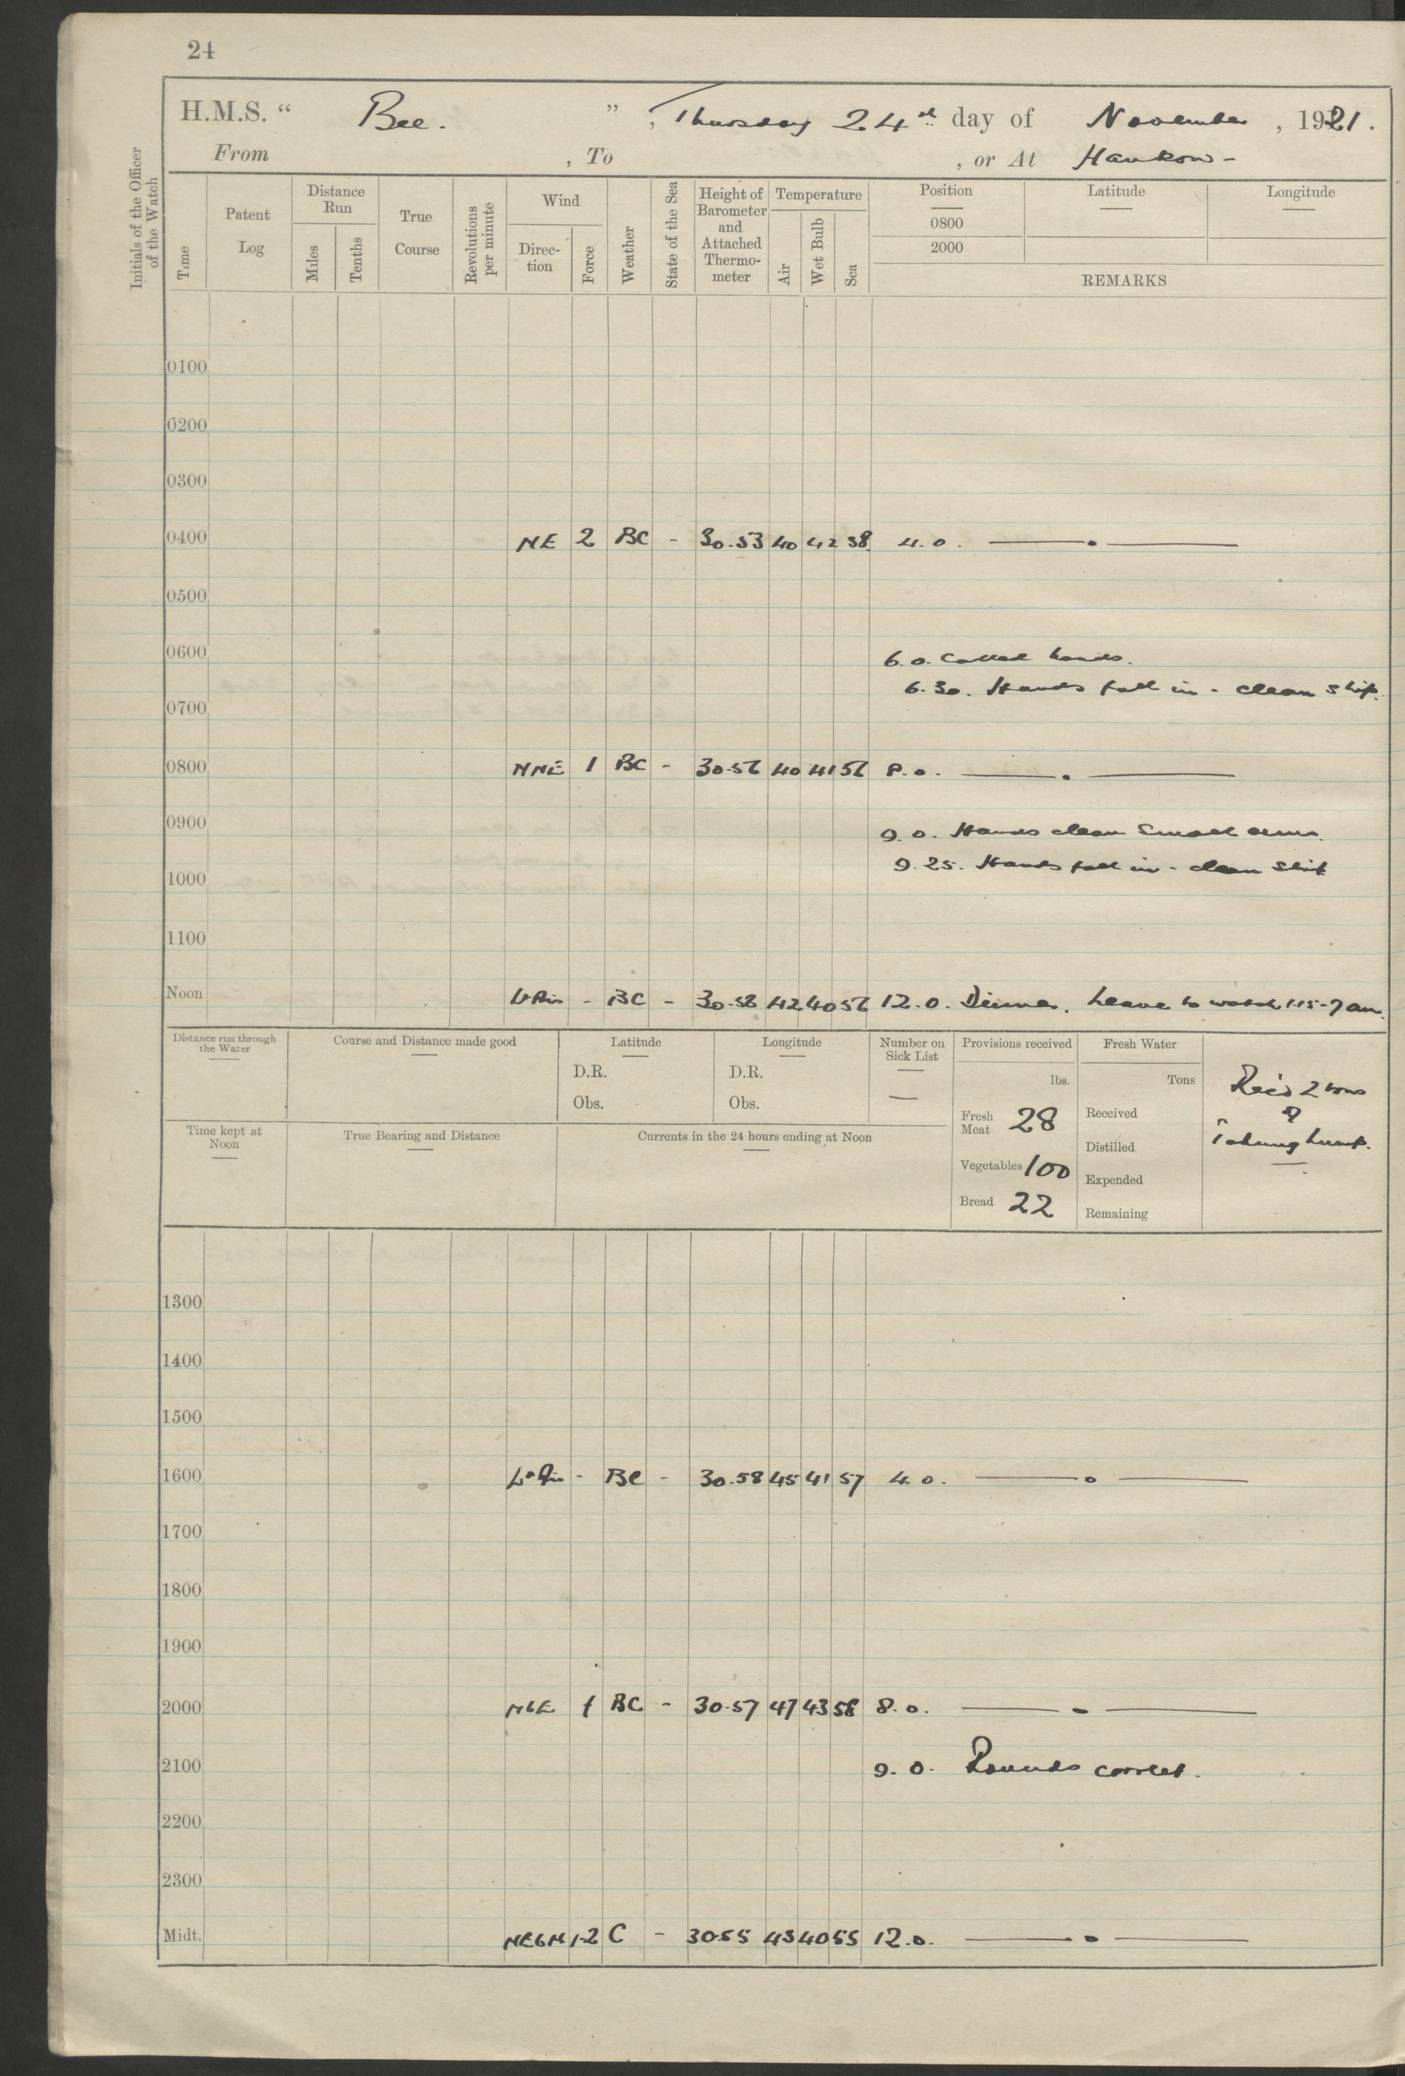 24
H.M.S. " Bee. ", Thursday 24th day of November, 1921.
From , To , or At Hankow -
Initials of the Officer of the Watch
Time
Patent Log
Distance Run
Miles
Tenths
True Course
Revolutions per minute
Wind
Direction
Force
Weather
State of the Sea
Height of Barometer and Attached Thermometer
Temperature
Air
Wet Bulb
Sea
Position Latitude Longitude
0800
2000
REMARKS
0100
0200
0300
0400 NE 2 BC - 30.53 40 42 58 4.0. —— . ——
0500
0600 6.0. Called hands.
6.30. Hands fall in - clean ship.
0700
0800 NNE 1 BC - 30.56 40 41 56 8.0. —— . ——
0900 9.0. Hands clean small arms.
9.25. Hands fall in - clean ship
1000
1100
Noon Lt Airs - BC - 30.58 42 40 56 12.0. Dinner. Leave to watch 1.15 - 7 am.
Distance run through the Water
Course and Distance made good
Latitude
D.R.
Obs.
Longitude
D.R.
Obs.
Number on Sick List
—
Provisions received
lbs.
Fresh Meat 28
Vegetables 100
Bread 22
Fresh Water
Tons
Received
Distilled
Expended
Remaining
Rec'd 2 tons
Time kept at Noon
True Bearing and Distance
Currents in the 24 hours ending at Noon
1300
1400
1500
1600 Lt Airs - BC - 30.58 45 41 57 4.0. —— o ——
1700
1800
1900
2000 NbE 1 BC - 30.57 47 43 58 8.0. —— - ——
2100 9.0. Rounds correct.
2200
2300
Midt. NEbN 1-2 C - 30.55 43 40 55 12.0. —— - ——